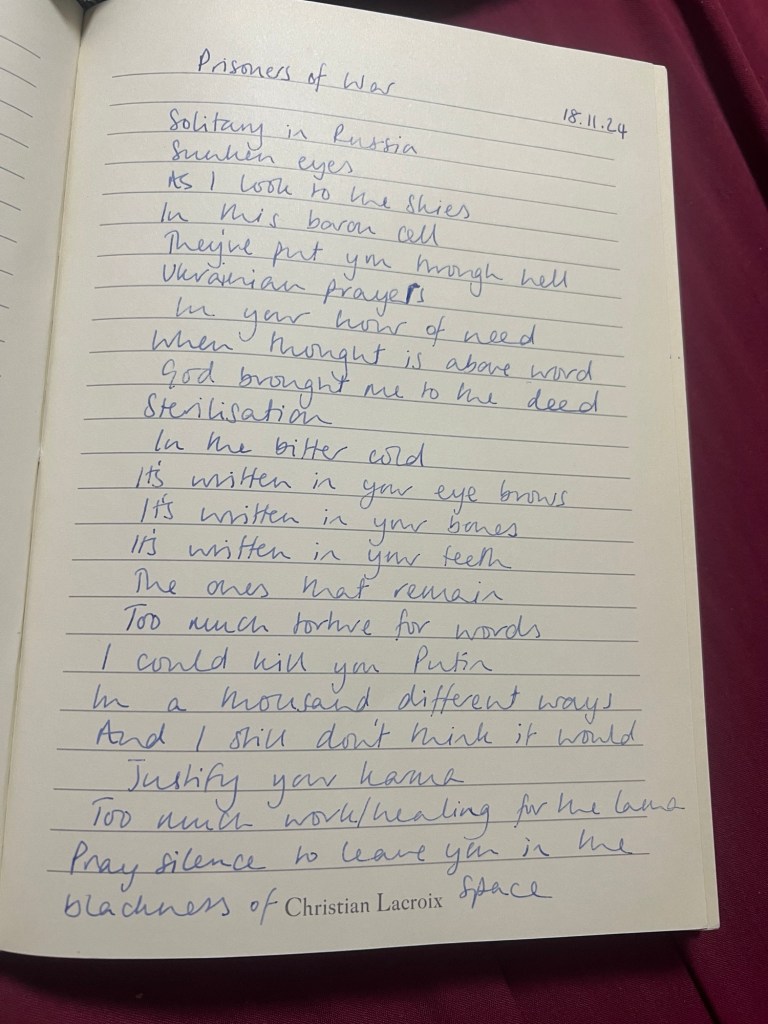 Prisoners of War
18.11.24
Solitary in Russia
Sunken eyes
As I look to the skies
In this baron cell
They've put you through hell
Ukrainian prayers
In your hour of need
When thought is above word
God brought me to the deed
Sterilisation
In the bitter cold
It's written in your eye brows
It's written in your bones
It's written in your teeth
The ones that remain
Too much torture for words
I could kill you Putin
In a thousand different ways
And I still don't think it would
Justify your karma
Too much work/healing for the lama
Pray silence to leave you in the
blackness of space
Christian Lacroix